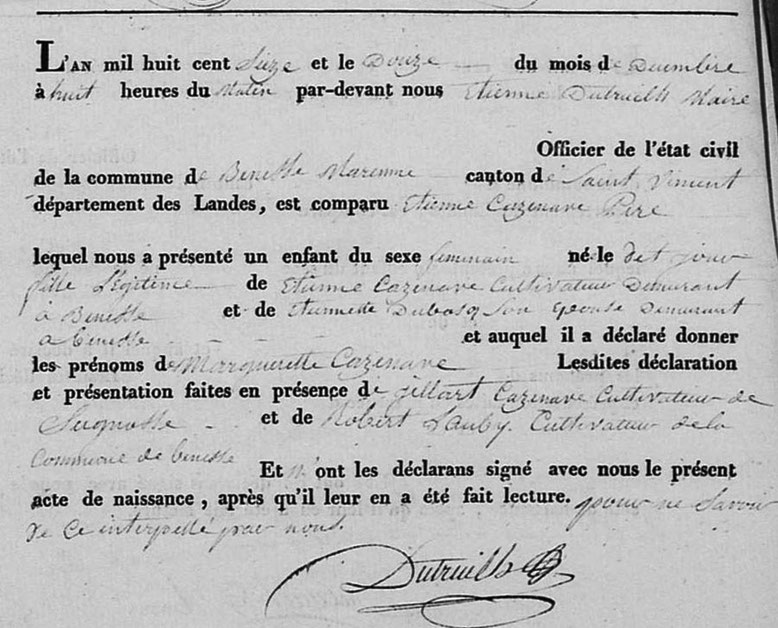 L'AN mil huit cent Seize et le Douze du mois de Decembre
à huit heures du Matin par-devant nous Etienne Dutruilh Maire
Officier de l'état civil
de la commune de Benesse Maremne canton de Saint Vincent
département des Landes, est comparu Etienne Cazenave Pere
lequel nous a présenté un enfant du sexe feminain né le det jour
fille Légitime de Etienne Cazenave Cultivateur Demurant
à Benesse et de Etiennette Dubosq Son epouse Demurant
a benesse et auquel il a déclaré donner
les prénoms de Marguerette Cazenave Lesdites déclaration
et présentation faites en présence de Cazenave Cultivateur de
Seignosse et de Robert Cultivateur de la
Commune de benesse
Et n'ont les déclarans signé avec nous le présent
acte de naissance, après qu'il leur en a été fait lecture. pour ne Savoir
de Ce interpellé par nous
Dutruilh